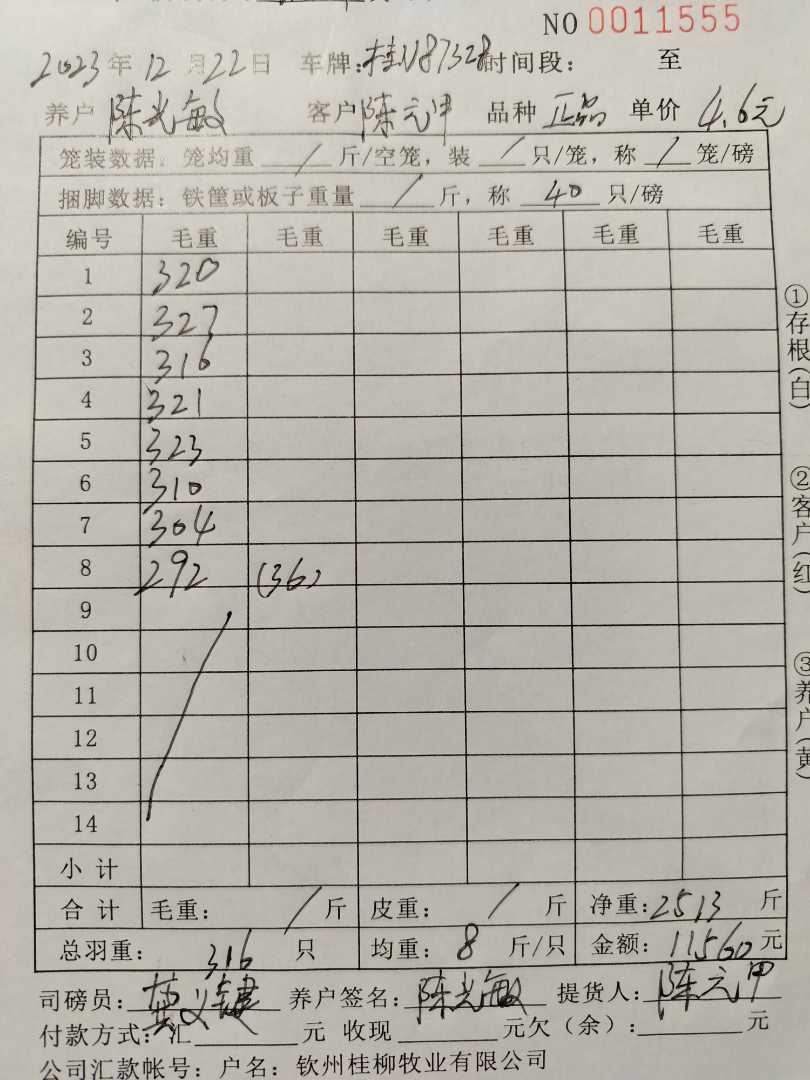 NO 0011555
2023年12月22日 车牌:桂N87328时间段: 至
养户 陈光敏 客户 陈元甲 品种 正品 单价 4.6元
笼装数据: 笼均重 / 斤/空笼, 装 / 只/笼, 称 / 笼/磅
捆脚数据: 铁筐或板子重量 / 斤, 称 40 只/磅
编号 毛重 毛重 毛重 毛重 毛重 毛重
1 320
2 327
3 316
4 321
5 323
6 310
7 304
8 292 (36)
9
10
11
12
13
14
小计
合计 毛重: / 斤 皮重: / 斤 净重:2513 斤
总羽重: 316 只 均重: 8 斤/只 金额: 11560元
司磅员: 养户签名: 陈光敏 提货人: 陈元甲
付款方式:汇 元 收现 元欠(余): 元
公司汇款帐号: 户名: 钦州桂柳牧业有限公司
①存根(白)
②客户(红)
③养户(黄